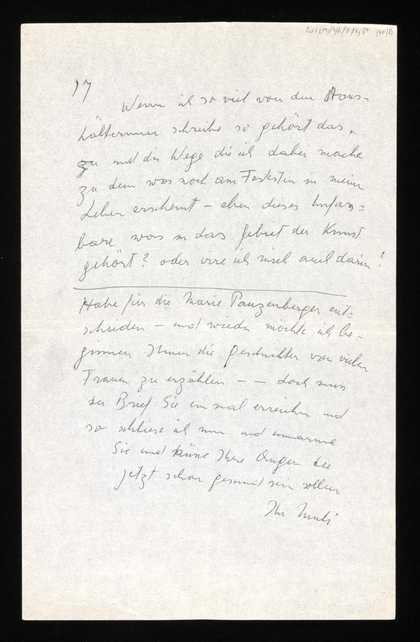 17
Wenn ich so viel von den Haus-
hälterinnen schreibe so gehört das
zu und die Wege die ich dabei mache
zu dem was noch am Festesten in meinem
Leben erscheint – eben dieses Unfass-
bare, was in das Gebiet der Kunst
gehört? oder irre ich mich auch darin?
Habe für die Marie Panzenberger ent-
schieden – und wieder möchte ich be-
ginnen Ihnen die Geschichten von vielen
Frauen zu erzählen – – doch muss
der Brief Sie einmal erreichen und
so schliesse ich nun und umarme
Sie und küsse Ihre Augen die
jetzt schon gesund sein sollen
Ihr